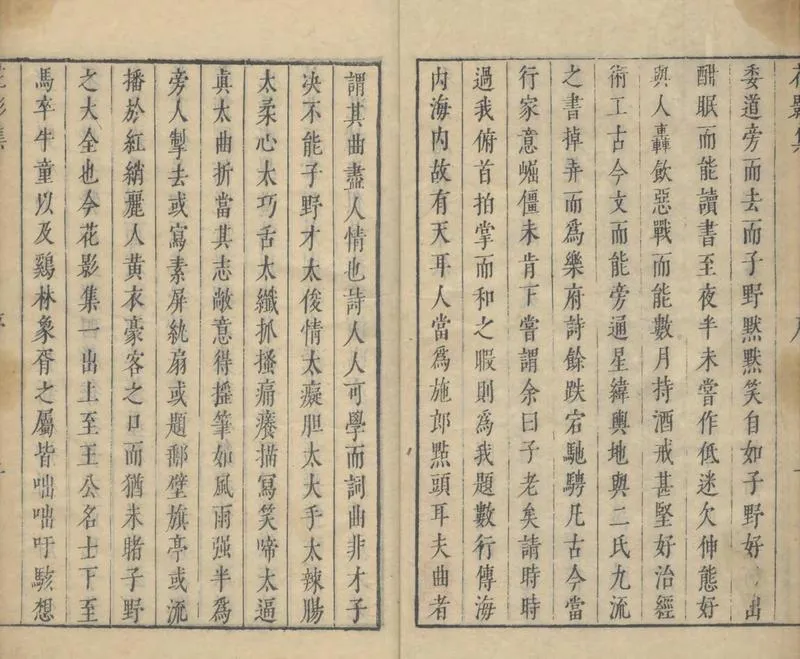 花影集
委道旁而去而子野黙黙笑自如子野好出
酣眠而能讀書至夜半未嘗作低迷欠伸態好
與人轟飲惡戰而能數月持酒戒甚堅好治經
術工古今文而能旁通星緯輿地與二氏九流
之書掉弄而為樂府詩餘跌宕馳騁凡古今當
行家意崛僵未肯下嘗謂余曰子老矣請時時
過我俯首拍掌而和之暇則為我題數行傳海
内海内故有天耳人當為施郎點頭耳夫曲者
謂其曲盡人情也詩人人可學而詞曲非才子
决不能子野才太俊情太癡胆太大手太辣腸
太柔心太巧舌太纖抓搔痛癢描寫笑啼太逼
真太曲折當其志敞意得搖筆如風雨强半為
旁人掣去或寫素屏紈扇或題郵壁旗亭或流
播於紅綃麗人黄衣豪客之口而猶未睹子野
之大全也今花影集一出上至王公名士下至
馬卒牛童以及鷄林象胥之屬皆咄咄吁駭想
花影集